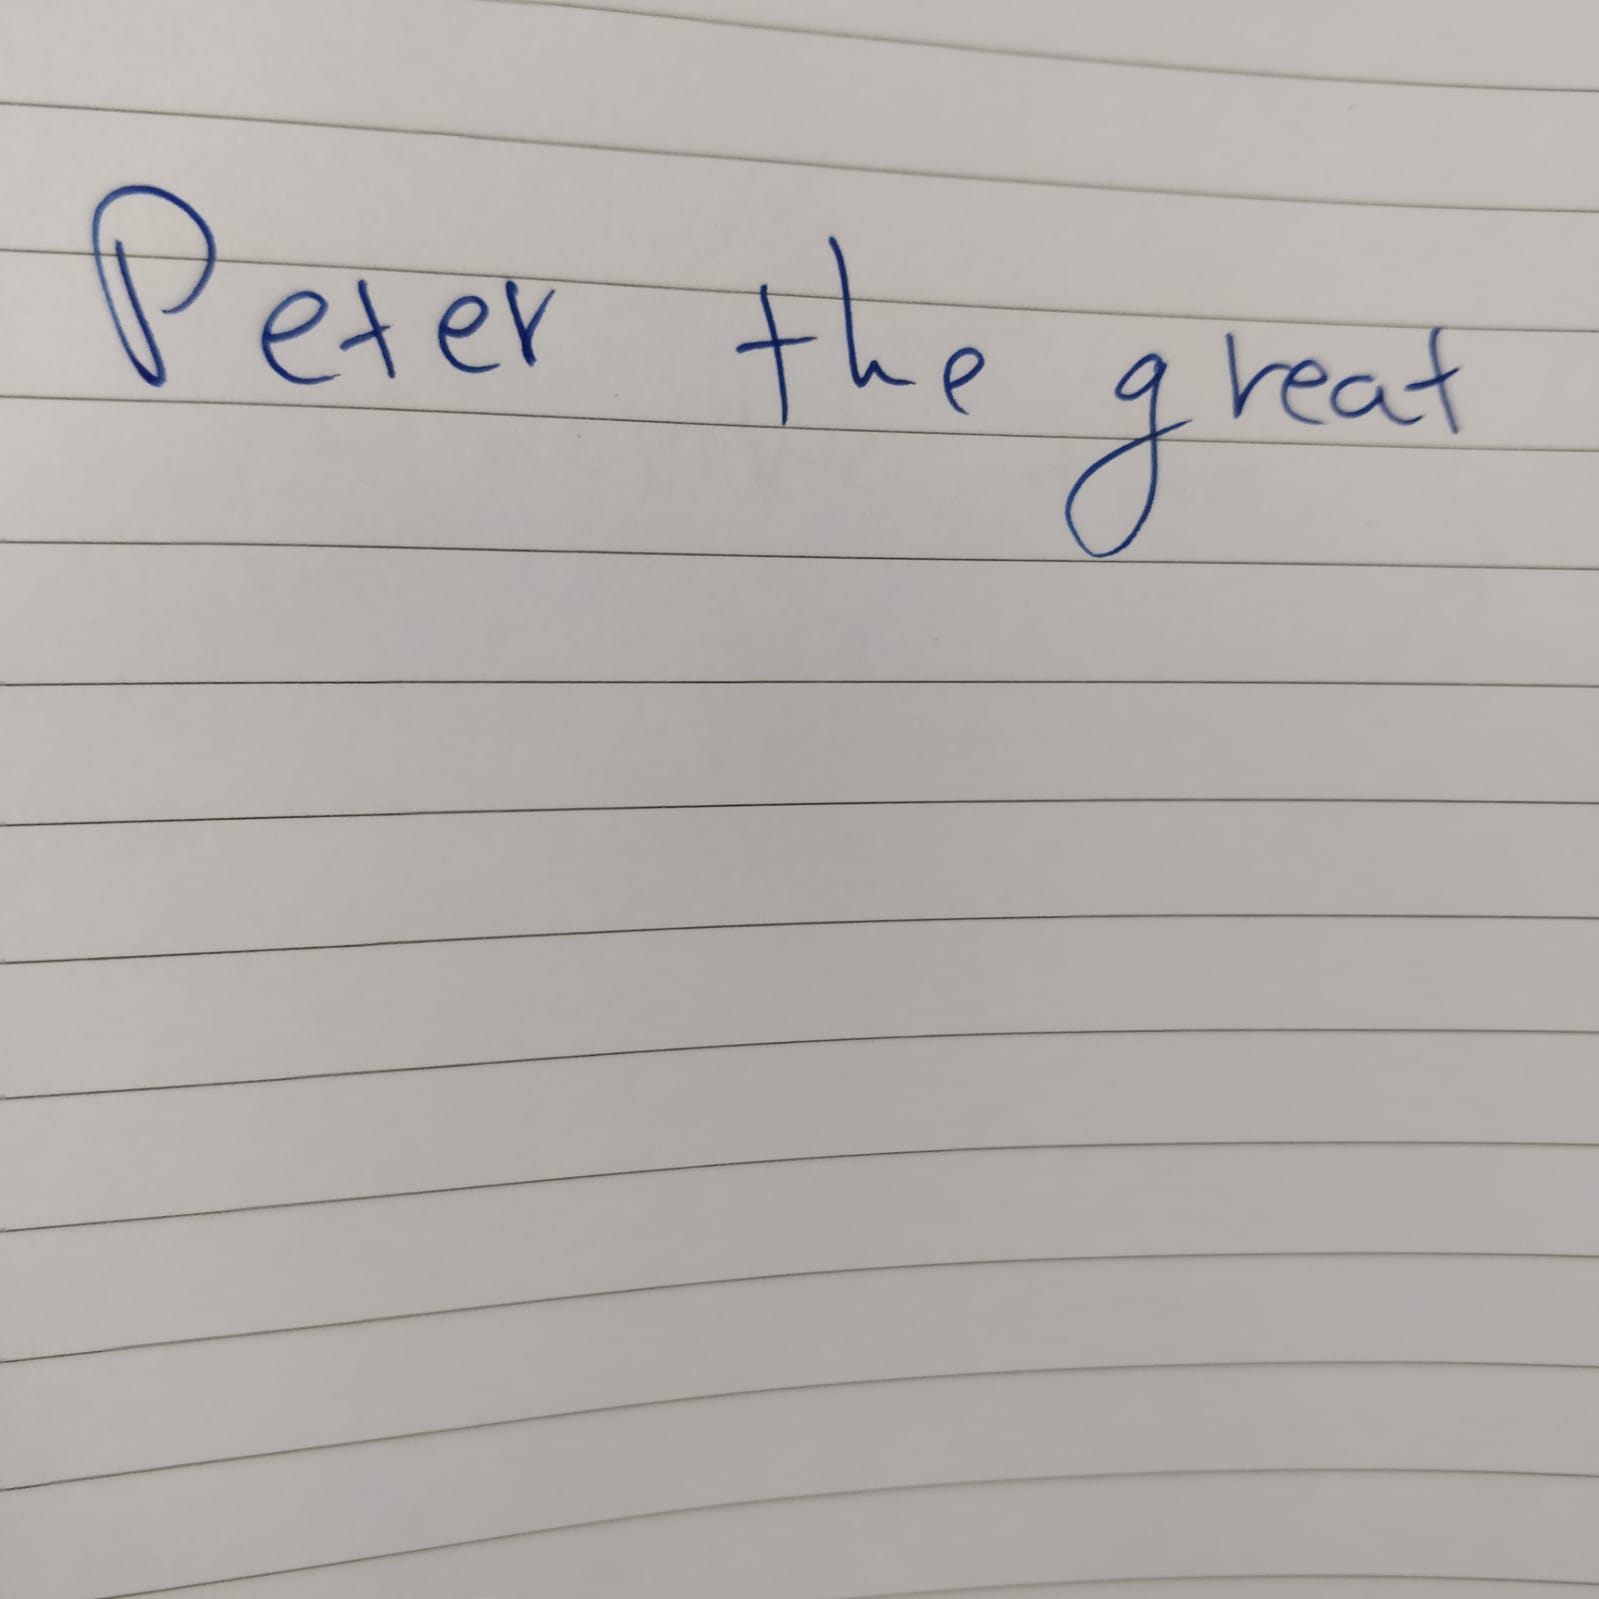 Peter the great